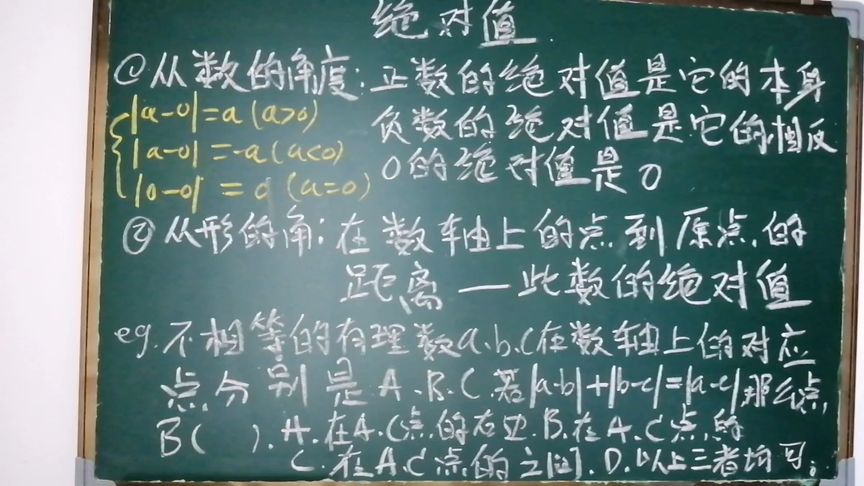 绝对值
①从数的角度:正数的绝对值是它的本身
|a-0|=a(a>0) 负数的绝对值是它的相反
|a-0|=-a(a<0) 0的绝对值是0
|0-0|=0(a=0)
②从形的角:在数轴上的点到原点的
距离—此数的绝对值
eg.不相等的有理数a.b.c在数轴上的对应
点分别是A.B.C.若|a-b|+|b-c|=|a-c|那么点,
B( ).A.在A.C点的右边.B.在A.C点的
C.在A.C点的之间.D.以上三者均可.